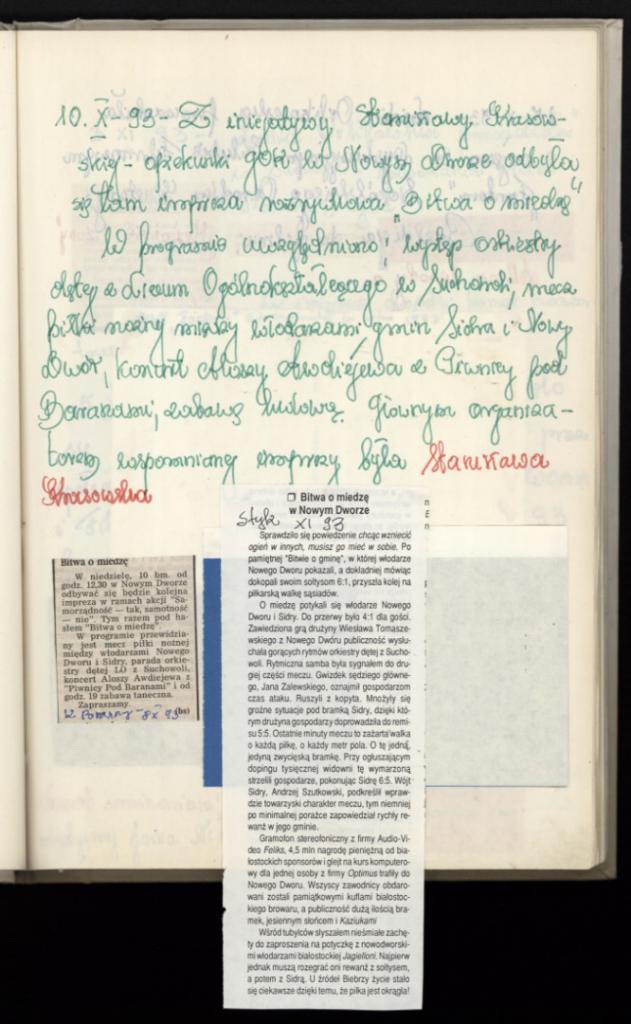 10. X - 93 - Z inicjatywy Stanisławy Krasow-
skiej - opiekunki GOK w Nowym Dworze odbyła
się tam impreza rozrywkowa "Bitwa o miedzę"
W programie uwzględniono: występ orkiestry
dętej z Liceum Ogólnokształcącego w Suchowoli, mecz
piłki nożnej między włodarzami gmin Sidra i Nowy
Dwór, koncert Aloszy Awdiejewa z Piwnicy pod
Baranami, zabawę ludową. Głównym organiza-
torem wspomnianej imprezy była Stanisława
Krasowska
Bitwa o miedzę
W niedzielę, 10 bm. od
godz. 12.30 w Nowym Dworze
odbywać się będzie kolejna
impreza w ramach akcji "Sa-
morządność — tak, samotność
— nie". Tym razem pod ha-
słem "Bitwa o miedzę".
W programie przewidzia-
ny jest mecz piłki nożnej
między włodarzami Nowego
Dworu i Sidry, parada orkie-
stry dętej LO z Suchowoli,
koncert Aloszy Awdiejewa z
"Piwnicy Pod Baranami" i od
godz. 19 zabawa taneczna.
Zapraszamy.
(bs)
K. Poranny - 8 X 93
❒ Bitwa o miedzę
w Nowym Dworze
Styk XI 93
Sprawdziło się powiedzenie chcąc wzniecić
ogień w innych, musisz go mieć w sobie. Po
pamiętnej "Bitwie o gminę", w której włodarze
Nowego Dworu pokazali, a dokładniej mówiąc
dokopali swoim sołtysom 6:1, przyszła kolej na
piłkarską walkę sąsiadów.
O miedzę potykali się włodarze Nowego
Dworu i Sidry. Do przerwy było 4:1 dla gości.
Zawiedziona grą drużyny Wiesława Tomasze-
wskiego z Nowego Dworu publiczność wysłu-
chała gorących rytmów orkiestry dętej z Sucho-
woli. Rytmiczna samba była sygnałem do dru-
giej części meczu. Gwizdek sędziego główne-
go, Jana Zalewskiego, oznajmił gospodarzom
czas ataku. Ruszyli z kopyta. Mnożyły się
groźne sytuacje pod bramką Sidry, dzięki któ-
rym drużyna gospodarzy doprowadziła do remi-
su 5:5. Ostatnie minuty meczu to zażarta walka
o każdą piłkę, o każdy metr pola. O tę jedną,
jedyną zwycięską bramkę. Przy ogłuszającym
dopingu tysięcznej widowni tę wymarzoną
strzelili gospodarze, pokonując Sidrę 6:5. Wójt
Sidry, Andrzej Szutkowski, podkreślił wpraw-
dzie towarzyski charakter meczu, tym niemniej
po minimalnej porażce zapowiedział rychły re-
wanż w jego gminie.
Gramofon stereofoniczny z firmy Audio-Vi-
deo Feliks, 4,5 mln nagrodę pieniężną od bia-
łostockich sponsorów i glejt na kurs komputero-
wy dla jednej osoby z firmy Optimus trafiły do
Nowego Dworu. Wszyscy zawodnicy obdaro-
wani zostali pamiątkowymi kuflami białostoc-
kiego browaru, a publiczność dużą ilością bra-
mek, jesiennym słońcem i Kaziukami
Wśród tubylców słyszałem nieśmiałe zachę-
ty do zaproszenia na potyczkę z nowodworski-
mi włodarzami białostockiej Jagielloni. Najpierw
jednak muszą rozegrać oni rewanż z sołtysem,
a potem z Sidrą. U źródeł Biebrzy życie stało
się ciekawsze dzięki temu, że piłka jest okrągła!